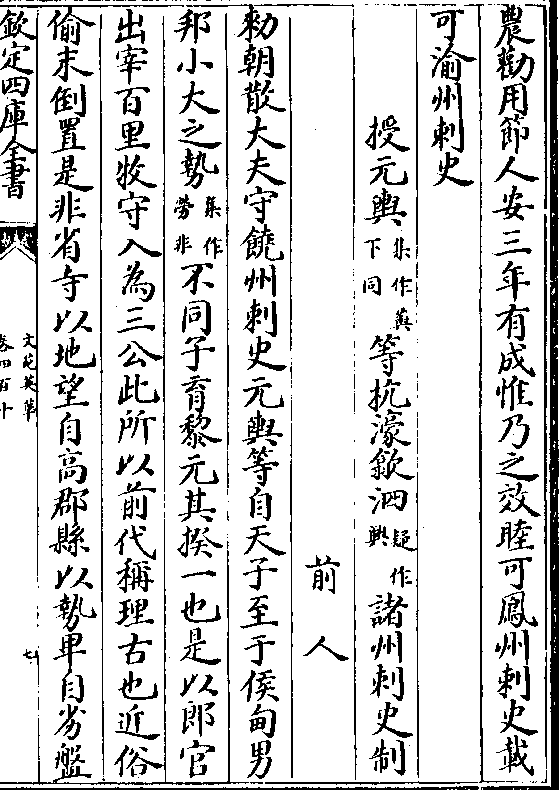 農勸用節人安三年有成惟乃之效睦可鳳州刺史載
可渝州刺史
授元輿集作藇下同等抗濠歙泗疑作興諸州刺史制
前人
勑朝散大夫守饒州刺史元輿等自天子至于侯甸男
邦小大之勢集作勞非不同子育黎元其揆一也是以郎官
出宰百里牧守入為三公此所以前代稱理古也近俗
偷末倒置是非省寺以地望自高郡縣以勢卑自劣盤
欽定四庫全書
文苑英華
卷四百十
七